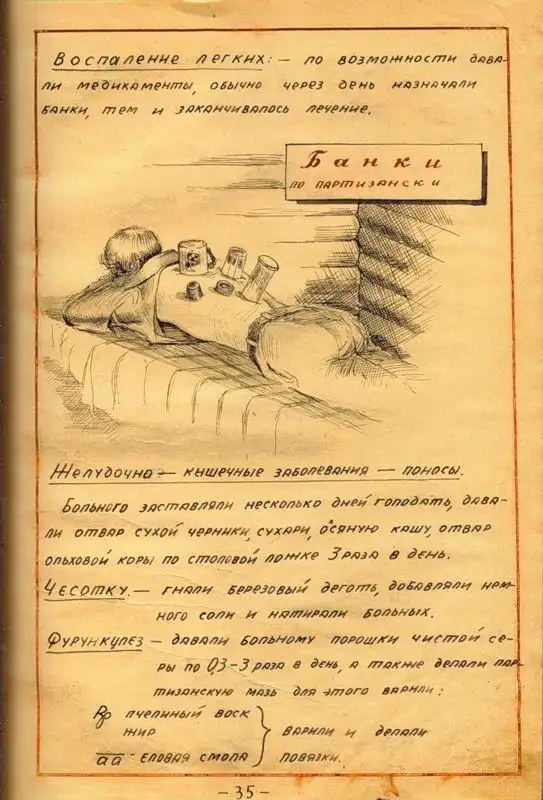 Воспаление легких: – по возможности дава-
ли медикаменты, обычно через день назначали
банки, тем и заканчивалось лечение.
Банки
по партизански
Желудочно – кишечные заболевания – поносы.
Больного заставляли несколько дней голодать, дава-
ли отвар сухой черники, сухари, овсяную кашу, отвар
ольховой коры по столовой ложке 3 раза в день.
Чесотку. – гнали березовый деготь, добавляли нем-
ного соли и натирали больных.
Фурункулез – давали больному порошки чистой се-
ры по 0,3–3 раза в день, а также делали пар-
тизанскую мазь для этого варили:
Rp пчелиный воск
жир
аа – еловая смола
варили и делали
повязки.
– 35 –